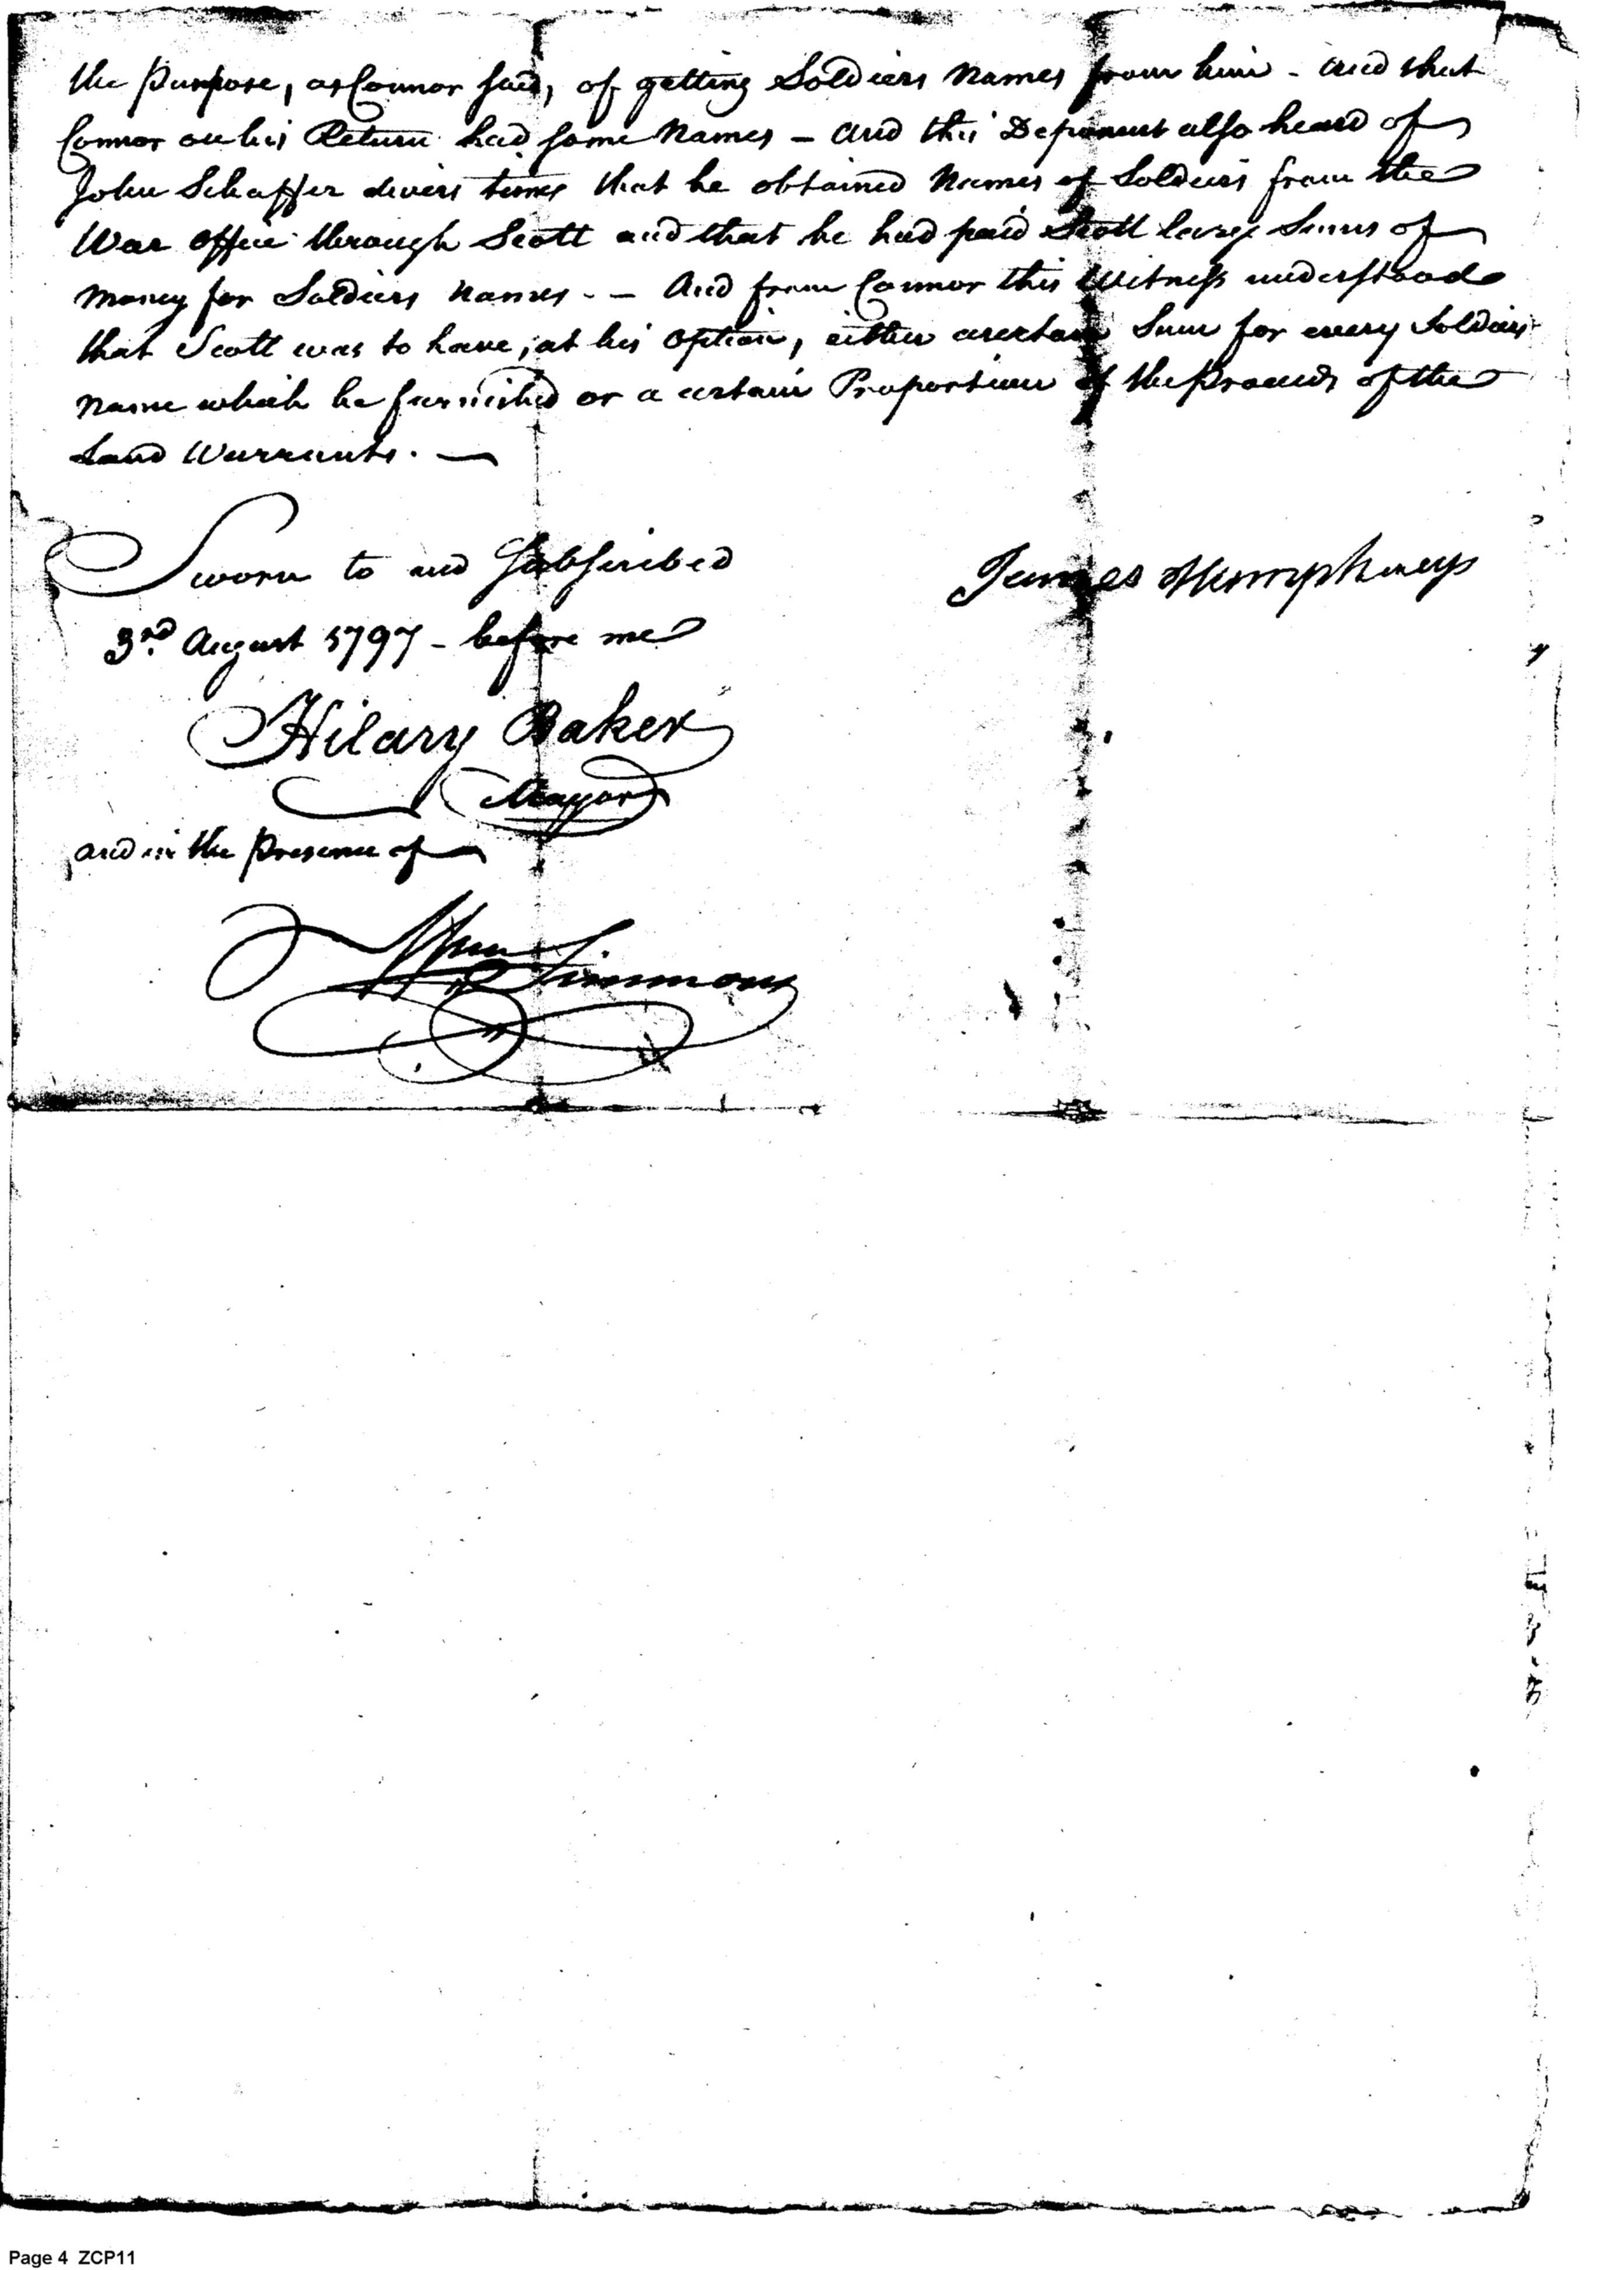 the Purpose, as Connor said, of getting Soldiers Names from him - and that
Connor on his Return had some Names - and this Deponent also heard of
John Schaffer divers times that he obtained Names of Soldiers from the
War Office through Scott and that he had paid Scott large Sums of
Money for Soldiers Names. - And from Connor this Witness understood
that Scott was to have, at his Option, either a certain Sum for every Soldiers
Name which he furnished or a certain Proportion of the Proceeds of the
Land Warrants. -
Sworn to and Subscribed
James Humphreys
3rd. August 1797 - before me
Hilary Baker
Mayor
and in the Presence of
Wm Simmons
Page 4 ZCP11